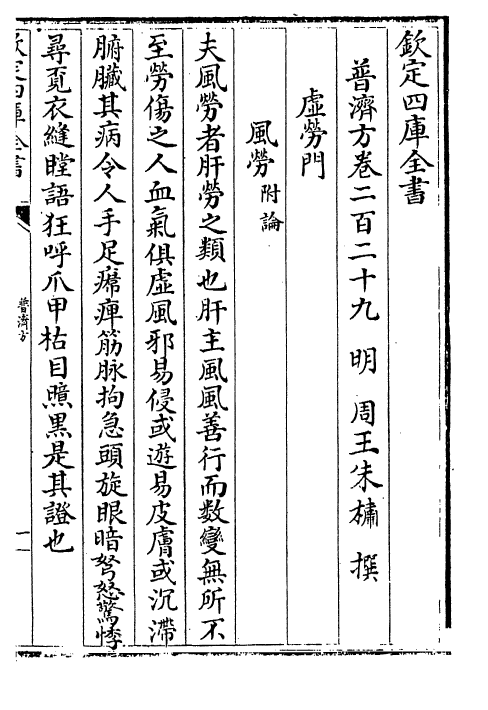 欽定四庫全書
普濟方卷二百二十九 明 周王朱橚 撰
虛勞門
風勞附論
夫風勞者肝勞之類也肝主風風善行而數變無所不
至勞傷之人血氣俱虛風邪易侵或遊易皮膚或沉滯
腑臟其病令人手足㿏痺筋脉拘急頭旋眼暗努怒驚悸
尋覔衣縫瞠語狂呼爪甲枯目䵴黒是其證也
欽定四庫全書
普濟方
一